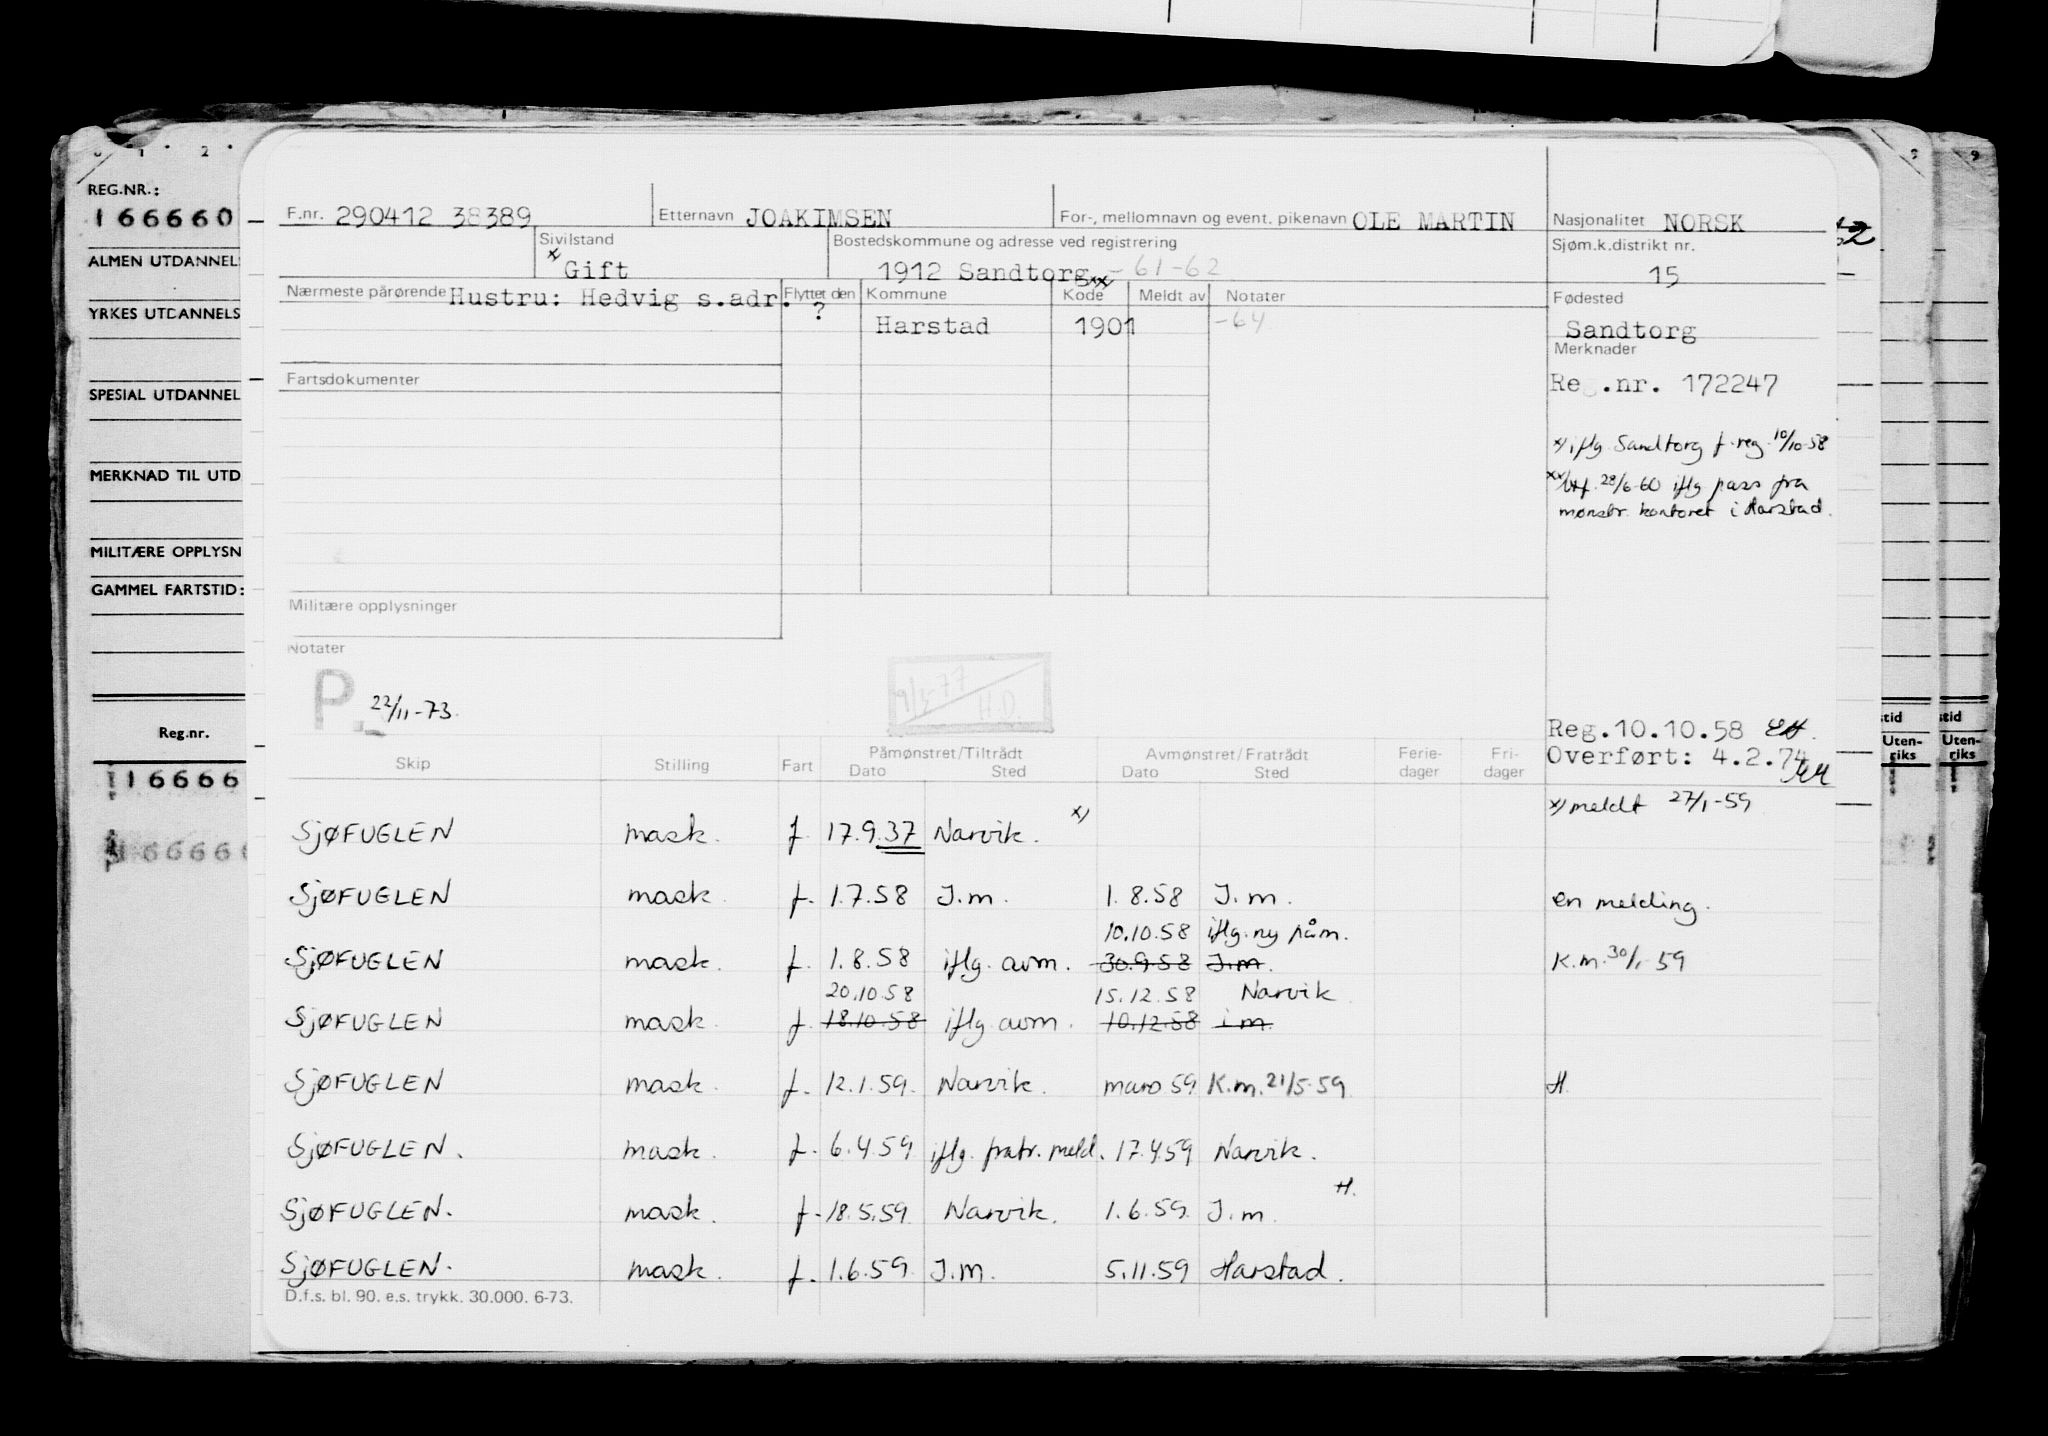 REG.NR.:
166660
ALMEN UTDANNEL
YRKES UTDANNELS
SPESIAL UTDANNEL
MERKNAD TIL UTD
MILITÆRE OPPLYSN
GAMMEL FARTSTID:
Reg.nr.
16666
16666
F.nr. 290412 38389 Etternavn JOAKIMSEN For-, mellomnavn og event. pikenavn OLE MARTIN Nasjonalitet NORSK
Sivilstand Bostedskommune og adresse ved registrering Sjøm.k.distrikt nr.
x Gift 1912 Sandtorg xx -61-62 15
Nærmeste pårørende Hustru: Hedvig s.adr. Flyttet den Kommune Kode Meldt av Notater Fødested
? Harstad 1901 -64 Sandtorg
Merknader
Fartsdokumenter Reg.nr. 172247
x) iflg Sandtorg f.reg. 10/10-58
xx) 28/6-60 iflg pass fra
mønstr. kontoret i Harstad.
Militære opplysninger
Notater
P. 22/11-73.
9/5-77
H.D.
Reg.10.10.58
Overført: 4.2.74
Skip Stilling Fart Påmønstret/Tiltrådt Avmønstret/Fratrådt Ferie- Fri-
Dato Sted Dato Sted dager dager
SJØFUGLEN mask. f. 17.9.37 Narvik. x) x) meldt 27/1-59
SJØFUGLEN mask. f. 1.7.58 I.m. 1.8.58 I.m. en melding.
10.10.58 iflg. ny påm.
SJØFUGLEN mask. f. 1.8.58 iflg. avm. 30.9.58 I.m. K.m. 30/1-59
20.10.58 15.12.58 Narvik
SJØFUGLEN mask. f. 18.10.58 iflg. avm. 10.12.58 i.m.
SJØFUGLEN mask. f. 12.1.59. Narvik. mars 59 K.m. 21/5-59 H.
SJØFUGLEN. mask. f. 6.4.59 iflg. fratr. meld. 17.4.59 Narvik.
H.
SJØFUGLEN. mask. f. 18.5.59 Narvik. 1.6.59. I.m.
SJØFUGLEN. mask. f. 1.6.59. I.m. 5.11.59 Harstad.
D.f.s. bl. 90. e.s. trykk. 30.000. 6-73.
stid
Uten-
riks
stid
Uten-
riks